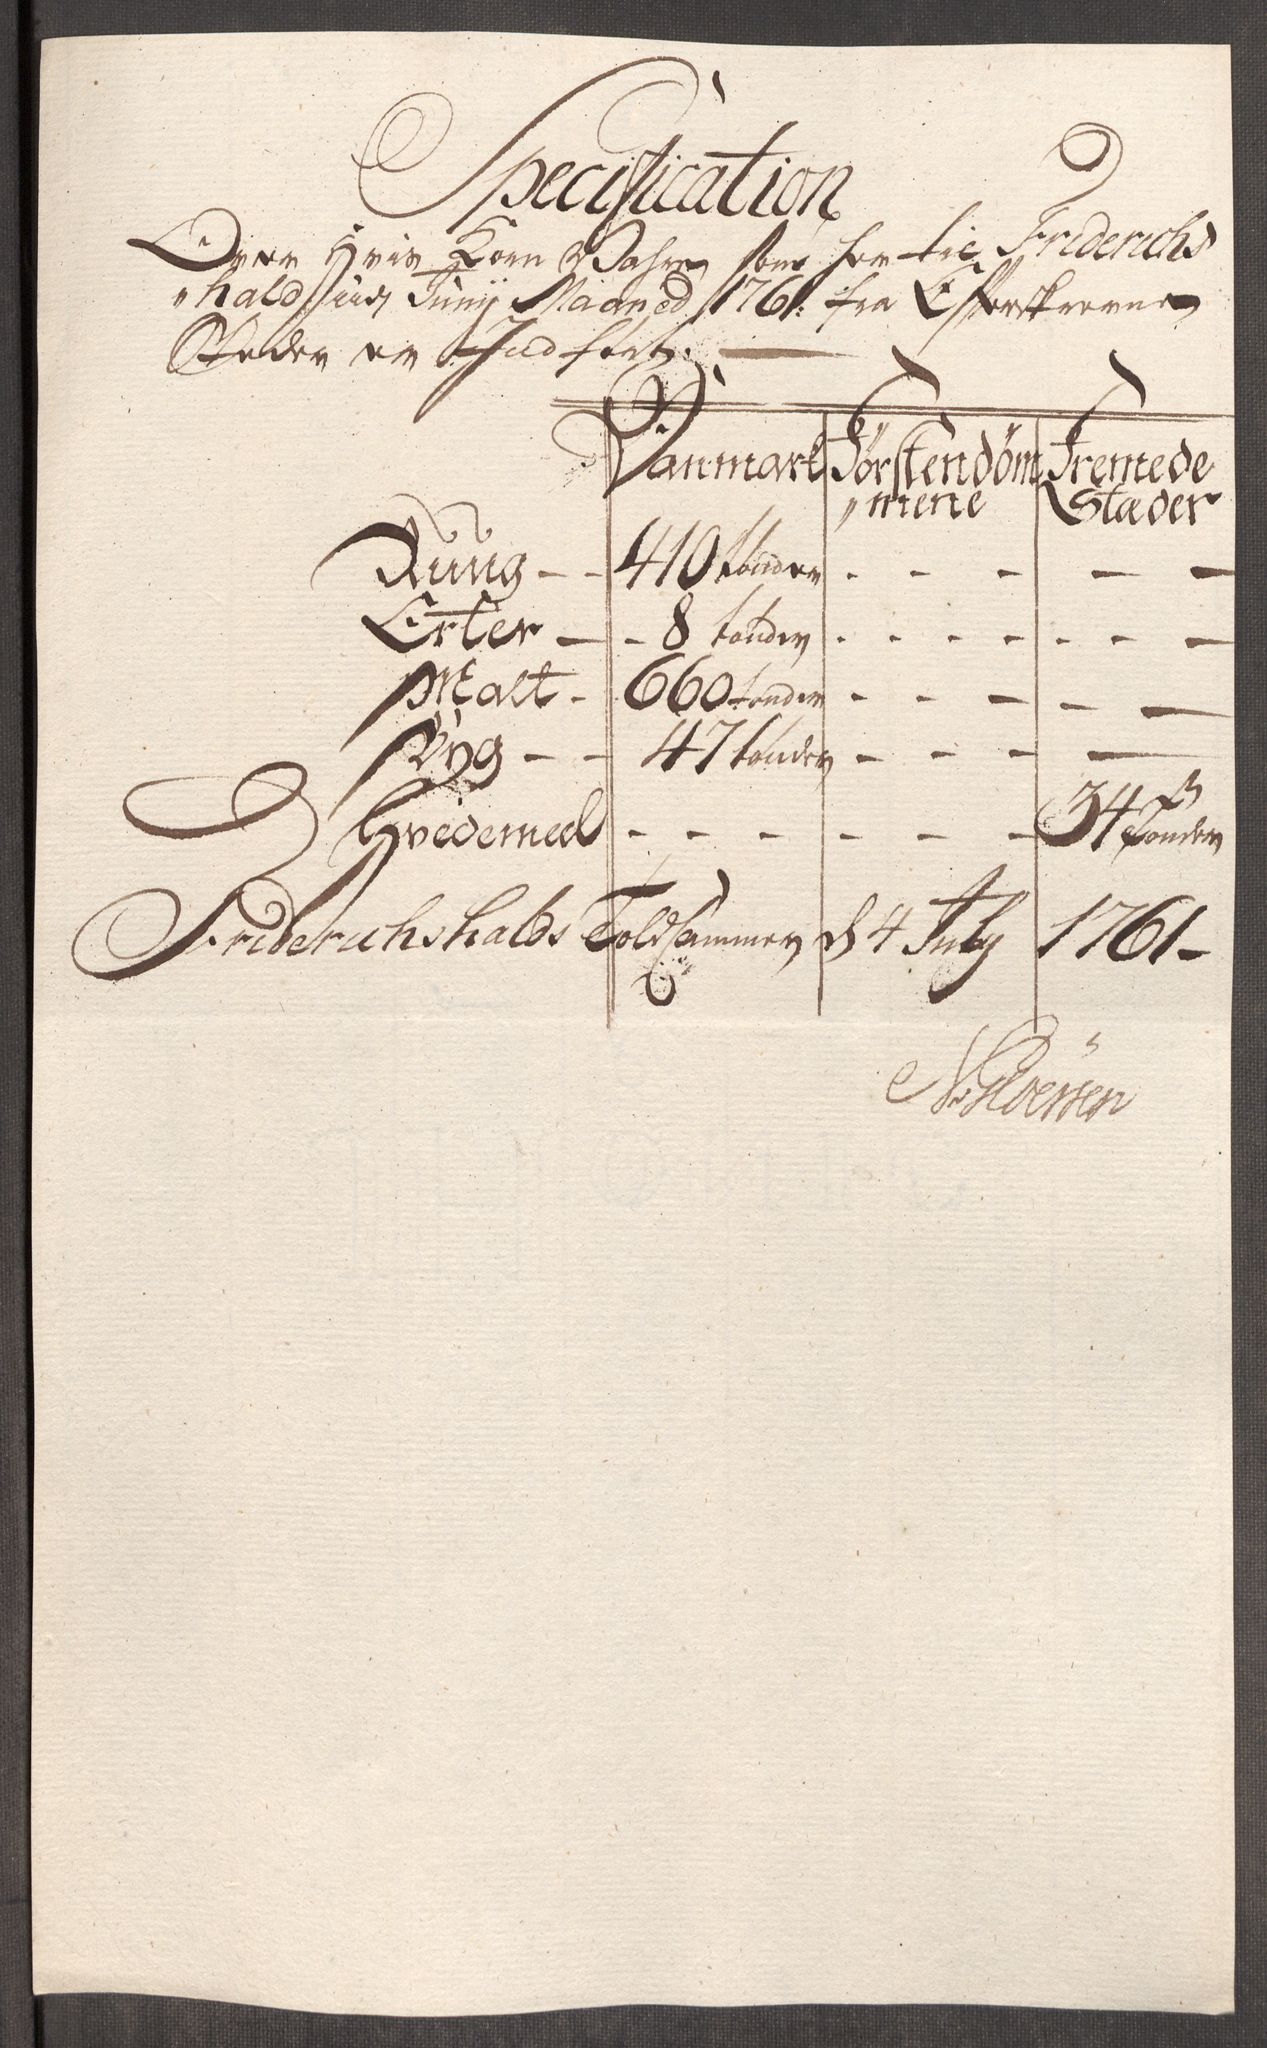 Specification
Over Hvis Korn Vahre som her til Friderichs
hald udj Junij Maaned 1761: fra Efterskrevne
Steder er Indført.
Danmark Førstendøm Fremede
mene Stæder
Rung - - 410 tønder - - - - -
Erter - - 8 tønder - - - - - - -
Malt - 660 tønder - - - - -
Byg - - 47 tønder - - - -
Hvedemeel - - - - - - 34 tønder
Friderichshalds Told Cammer d 4 July 1761-